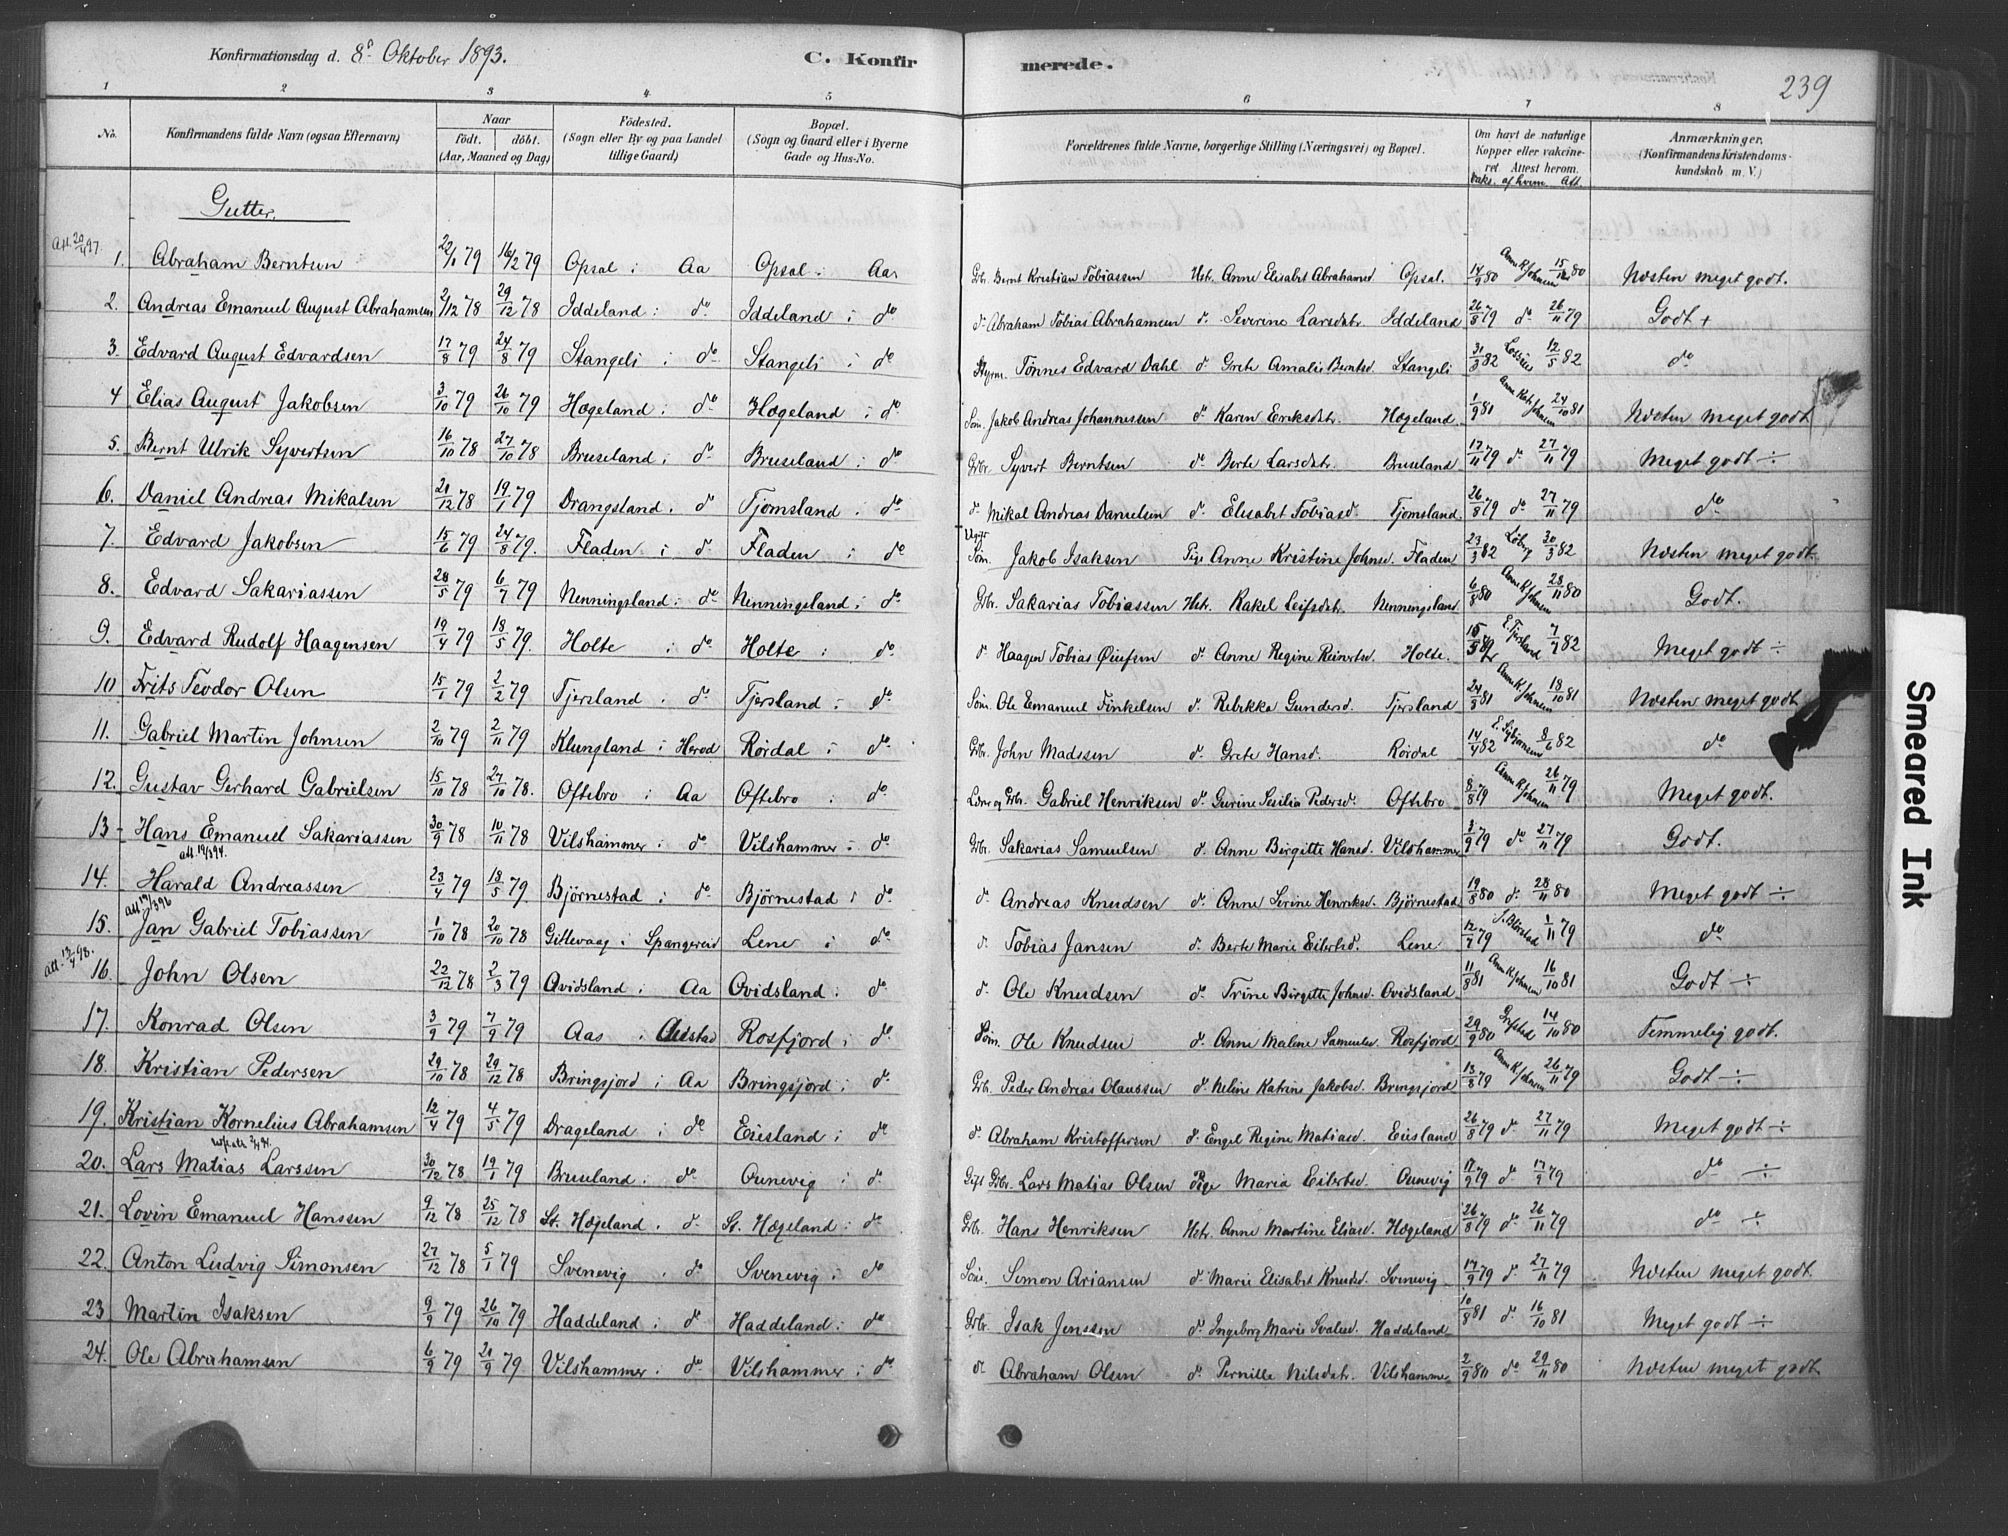 Konfirmationsdag d. 8de Oktober 1893.
C. Konfir merede.
239
1 2 3 4 5 6 7 8
No. Konfirmandens fulde Navn (ogsaa Efternavn) Naar født. døbt. (Aar, Maaned og Dag) Fødested. (Sogn eller By og paa Landet tillige Gaard) Bopæl. (Sogn og Gaard eller i Byerne Gade og Hns-No. Forældrenes fulde Navne, borgerlige Stilling (Næringsvei) og Bopæl. Om havt de naturlige Kopper eller vakcineret. Attest herom. Vaks. af hvem Att. Anmærkninger. (Konfirmandens Kristendomskundskab m. V.)
Gutter.
Att. 20/4 97.
1. Abraham Berntsen 22/1 79 16/2 79 Opsal i Aa Opsal i Aa Gbr. Bernt Kristian Tobiassen Hst. Anne Elisabet Abrahamsd Opsal. 14/9 80 Anne K. Johnsen 15/12 80 Næsten meget godt.
2. Andreas Emanuel August Abrahamsen 2/12 78 29/12 78 Iddeland i do Iddeland i do d. Abraham Tobias Abrahamsen d. Severine Larsdatr. Iddeland 26/8 79 do 26/11 79 Godt +
3. Edvard August Edvardsen 17/8 79 24/8 79 Stangeli i do Stangeli i do Styrm. Tönnes Edvard Dahl d. Grete Amalie Berntsd. Stangeli 31/3 82 12/5 82 do
4 Elias August Jakobsen 3/10 79 26/10 79 Hægeland i do Hægeland i do Søm. Jakob Andreas Johannessen d. Karen Eriksdatr. Hægeland. 1/9 81 Anne Katr. Johnsen 24/10 81 Næsten meget godt
5. Bernt Ulrik Syvertsen 16/10 78 27/10 78 Bruseland i do Bruseland i do Gbr. Syvert Berntsen d. Berte Larsdatr. Bruseland 17/11 79 do 27/11 79 Meget godt ÷
6. Daniel Andreas Mikalsen 21/12 78 19/1 79 Drangsland i do Tjomsland i do d. Mikal Andreas Danielsen d. Elisabet Tobiasd. Tjomsland. 26/8 79 do 27/11 79 do
7. Edvard Jakobsen 15/6 79 24/8 79. Fladen i d. Fladen i do Ugift Søm. Jakob Isaksen Pige Anne Kristine Johnsd. Fladen 23/3 82 Löberg 30/3 82 Næsten meget godt
8. Edvard Sakariassen 28/5 79 6/7 79 Nenningsland i do Nenningsland i do Gbr. Sakarias Tobiassen Hst. Rakel Leifsdatr. Nenningsland. 6/8 80 Anne K. Johnsen 28/11 80 Godt.
9. Edvard Rudolf Haagensen 19/4 79 18/5 79. Holte i do Holte i do d. Haagen Tobias Øiufsen d. Anne Regine Reinertsd. Holte. E. Tjersland 7/7 82 Meget godt ÷
10 Frits Teodor Olsen 15/1 79 2/2 79 Tjersland i do Tjersland i do Søm. Ole Emanuel Finkelsen d. Rebekka Gundersd. Tjersland 24/8 81 Anne K. Johnsen 18/10 81 Næsten meget godt
11. Gabriel Martin Johnsen 2/10 79 2/11 79 Klungland i Herad Rördal i do Gbr. John Madssen d. Grete Hansd. Rördal 14/4 82 8/6 82 do
12. Gustav Gerhard Gabrielsen 15/10 78 27/10 78. Oftebro i Aa Oftebro i do Gabriel Henriksen d. Gurine Sesilia Pedersd. Oftebro 8/8 79 Anne K. Johnsen 26/11 79 Meget godt.
13 Hans Emanuel Sakariassen 30/9 78 10/11 78 Vilshammer i do Vilshammer i do Gbr. Sakarias Samuelsen d. Anne Birgitte Hansd. Vilshammer 2/9 79 do 27/11 79 Godt.
att. 19/3 94.
14. Harald Andreassen 23/4 79 18/5 79. Björnestad i do Björnestad i do d. Andreas Knudsen d. Anne Serine Henriksd. Björnestad 19/8 80 d. 28/11 80 Meget godt ÷
att 19/3 96
15. Jan Gabriel Tobiassen 1/10 78 20/10 78 Gitlevaag i Spangereid Lene i do d. Tobias Jansen d. Berte Marie Eilertsd. Lene 12/7 79 1/11 79 do
att. 13/4 98.
16. John Olsen 22/12 78 2/3 79 Ovidsland i Aa Ovidsland i do d. Ole Knudsen d. Trine Birgitte Johnsd. Ovidsland 11/8 81 Anne K. Johnsen 16/10 81 Godt ÷
17. Konrad Olsen 3/9 79 7/9 79 Aas i Austad Rosfjord i do Søm. Ole Knudsen d. Anne Malene Samuelsd. Rosfjord 29/9 80 14/10 80 Temmelig godt.
18. Kristian Pedersen 29/10 78 29/12 78 Bringsjord i Aa Bringsjord i do Gbr. Peder Andreas Olaussen d. Neline Katrine Jakobsd. Bringsjord 13/8 79 Anne K. Johnsen 26/11 79 Godt ÷
19. Kristian Kornelius Abrahamsen 12/4 79 4/5 79 Drageland i do Eiesland i do d. Abraham Kristoffersen d. Engel Regine Matiasd. Eiesland 26/8 79 do 27/11 79 Meget godt ÷
20. Lars Matias Larssen 30/12 78 19/1 79 Bruseland i do Ounevig i do Gift Gbr. Lars Matias Olsen Pige Maria Eilertsd. Ounevig 17/9 79 do 17/9 79 do ÷
21. Lovin Emanuel Hanssen 9/12 78 25/12 78 St. Hægeland i d. St. Hægeland i do Gbr. Hans Henriksen Hst. Anne Martine Eliasd. Hægeland 26/8 79 do 26/11 79 do ÷
22. Anton Ludvig Simonsen 27/12 78 5/1 79 Svenevig i do Svenevig i do Søm. Simon Ariansen d. Marie Elisabet Knudsd. Svenevig 17/9 79 do 27/11 79 Næsten meget godt
23 Martin Isaksen 9/9 79 26/10 79 Haddeland i do Haddeland i do Gbr. Isak Jenssen d. Ingeborg Marie Svalesd. Haddeland 10/8 81 do 16/10 81 Meget godt ÷
24. Ole Abrahamsen 6/9 79 21/9 79 Vilshammer i do Vilshammer i do d. Abraham Olsen d. Pernille Nilsdatr. Vilshammer 2/9 80 do 29/11 80 Næsten meget godt
Smeared Ink